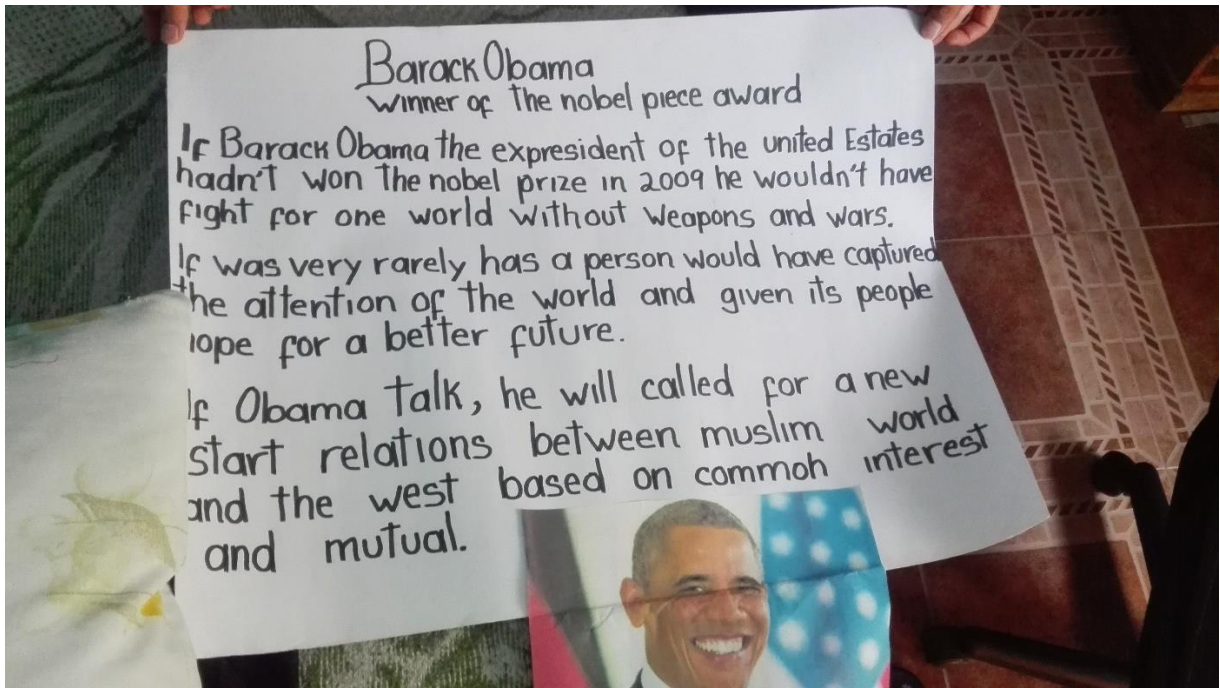 Barack Obama
winner of The nobel piece award
If Barack Obama the expresident of the united Estates
hadn't won The nobel prize in 2009 he wouldn't have
fight for one world without weapons and wars.
If was very rarely has a person would have captured
the attention of the world and given its people
hope for a better future.
If Obama talk, he will called for a new
start relations between muslim world
and the west based on common interest
and mutual.